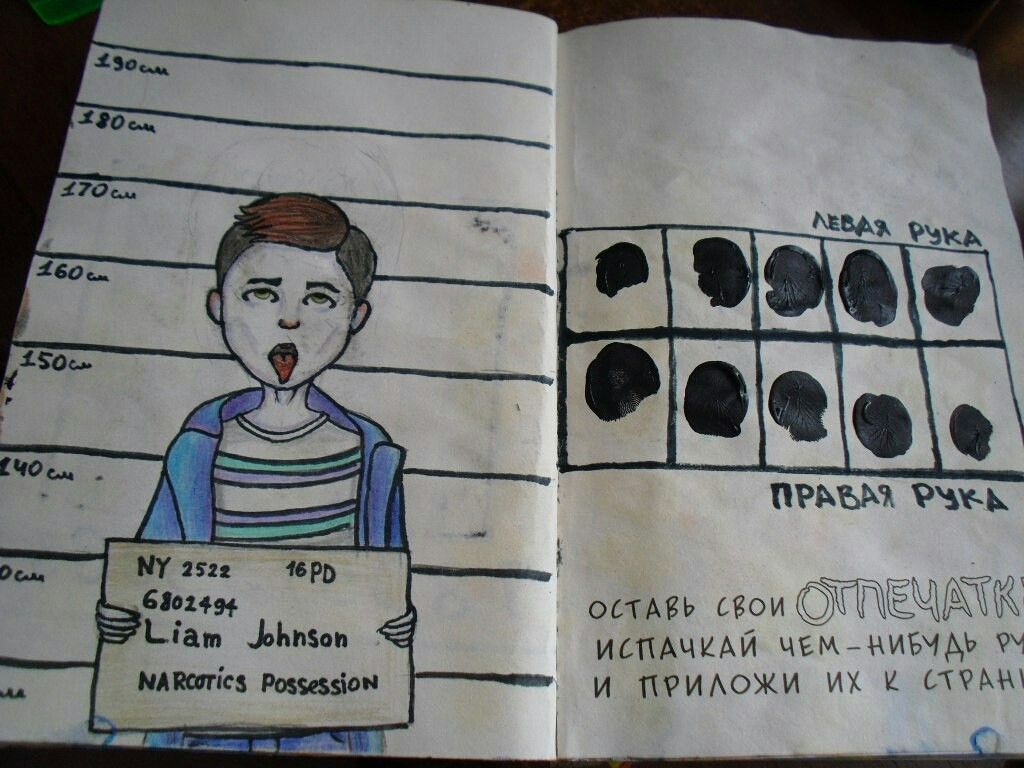 190см
180см
170см
160см
150см
140см
NY 2522 16PD
6802494
Liam Johnson
NARCOTICS POSSESSION
ЛЕВАЯ РУКА
ПРАВАЯ РУКА
ОСТАВЬ СВОИ ОТПЕЧАТК
ИСПАЧКАЙ ЧЕМ-НИБУДЬ РУ
И ПРИЛОЖИ ИХ К СТРАН